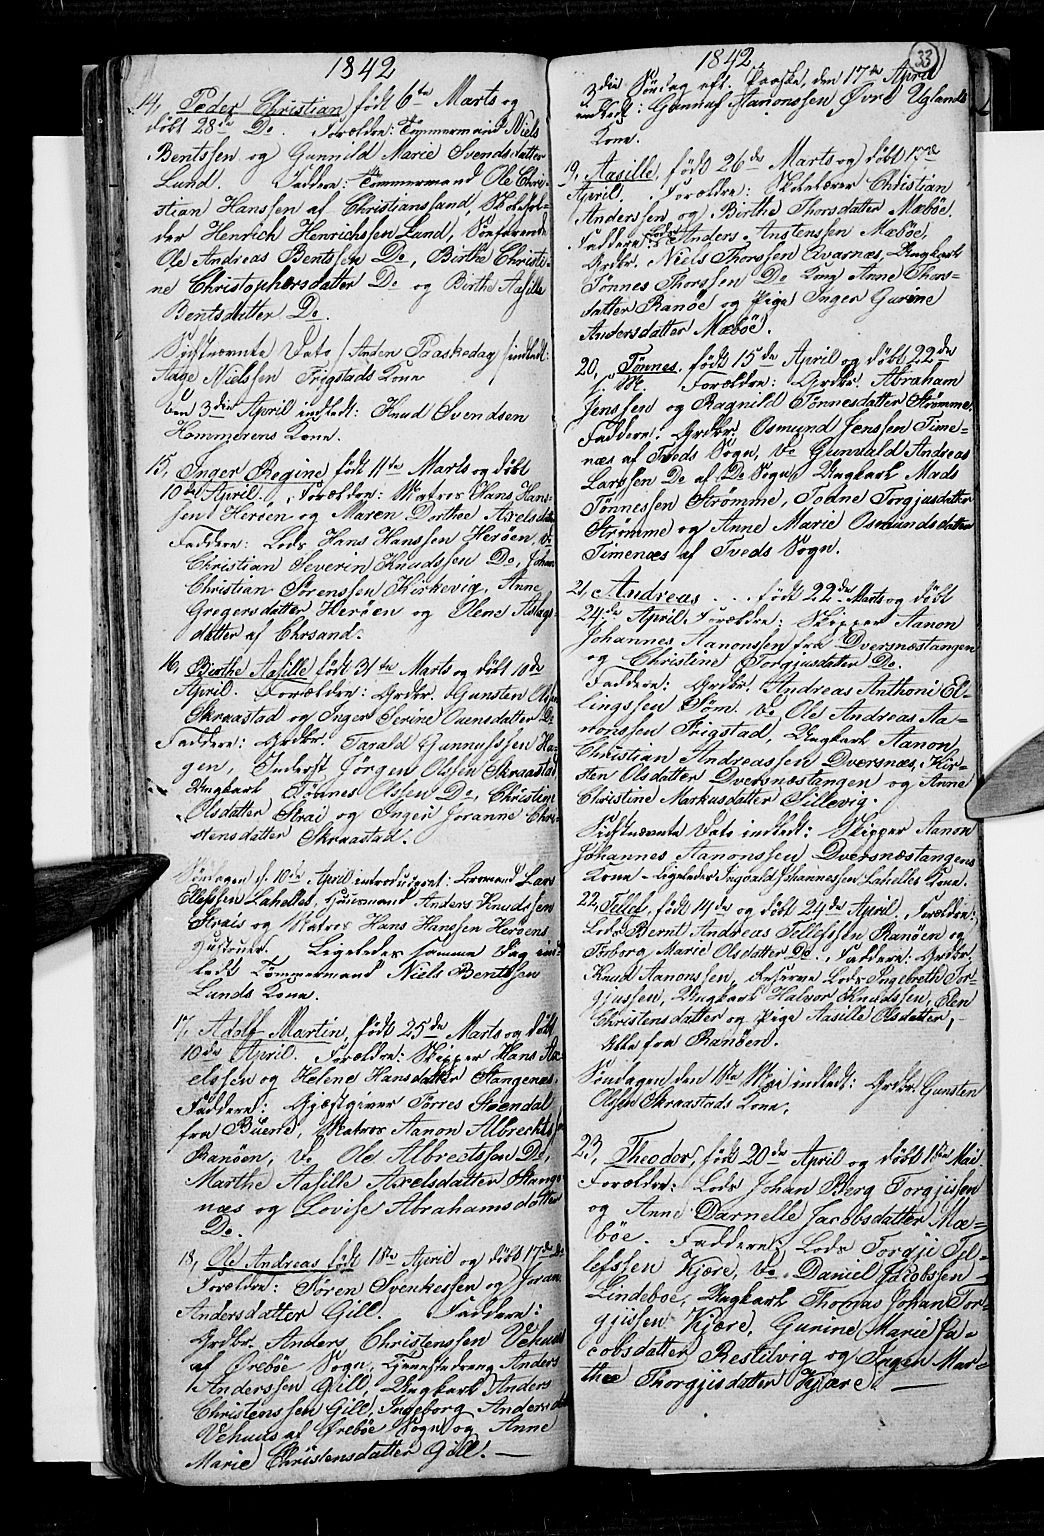 1842
14, Peder Christian, født 6te Marts og
døbt 28de Do. Forældre: Tømmermand Niels
Bentssen og Gunnild Marie Svendsdatter
Lund. Faddere: Tømmermand Ole Chri-
stian Hanssen af Christianssand,
der Henrich Henrichssen Lund, Søefarende
Ole Andreas Bentssen Do, Birthe Christi-
ne Christophersdatter Do og Birthe Aasille
Bentsdatter Do.
Sidstnævnte Dato /Anden Paaskedag/ indledt:
Aage Nielssen Frigstads Kone
Den 3die April indledt: Knud Svendsen
Hommerens Kone.
15, Inger Regine, født 11te Marts og døbt
10de April. Forældre: Matros Hans Hans-
sen Herøen og Maren Dorthee Axelsdatter
Faddere: Lods Hans Hanssen Herøen, Do
Christian Severin Knudssen Do, Johan
Christian Sørenssen Kirkevig, Anne
Gregersdatter Herøen og Olene Aslags-
datter af Chrsand.
16, Birthe Aasille født 31te Marts og døbt 10de
April. Forældre: Grdbr. Gunsten Olsen
Skraastad og Inger Serine Ouensdatter Do
Faddere: Grdbr. Tarald Gunnufssen Ha-
gen, Inderst Jörgen Olssen Skraastad
Ungkarl Tønnes Olssen Do, Christine
Olsdatter Strai og Inger Joranne Chri-
stensdatter Skraastad.
Søndagen d. 10de April introduceret: Lars
Ellefssen Lahelles, Huusmand Anders Knudssen
Strais og Matros Hans Hanssen Herøens
Hustruer. Ligeledes samme Dag ind-
ledt Tømmermand Niels Bentssen
Lunds Kone.
17, Adolf Martin, født 25de Marts og døbt
10de April. Forældre: Skipper Hans Ax-
elssen og Helene Hansdatter Stangenes.
Faddere: Gjæstgiver Torres Svendal
fra Buene, Matros Aanon Albrechts
Ranøen, Do Ole Albrectssen Do,
Marthe Aasille Axelsdatter Stange-
næs og Lovise Abrahamsdatter
Do.
18, Ole Andreas født 1ste April og døbt 17de Do
Forældre: Søren Svenkessen og Joran
Andersdatter Gill. Faddere:
Grdbr. Anders Christenssen Vehuus
afØrebøe Sogn, Tjenestedreng Anders
Anderssen Gill, Ungkarl Anders
Christenssen Gill, Ingeborg Andersd
Vehuus af Ørebøe Sogn og Anne
Marie Christensdatter Gill. —
1842
33
3die Søndag eft. Paaske, den 17de April
indledt: Gunnuf Aanonssen Øvre Uglands
Kone.
19, Aasille, født 26de Marts og døbt 17de
April. Forældre: Skolelærer Christian
Anderssen og Birthe Thorsdatter Mæbøe.
Faddere: Anders Anstenssen Mæbøe,
Grdbr. Niels Thorssen Kvarnæs, Ungkarl
Tønnes Thorssen Do Anne Thors-
datter Ranøe og Pige Inger Gurine
Andersdatter Mæbøe.
20, Tønnes, født 15de April og døbt 22de
s. M. Forældre: Grdbr. Abraham
Jenssen og Ragnild Tønnesdatter Strømme.
Faddere: Grdbr. Osmund Jenssen Time-
næs af Tveds Sogn, Do Gunvald Andreas
Larssen Do af Do Sogn, Ungkarl Mads
Tønnessen Strømme, Todne Torgjusdatter
Strømme og Anne Marie Osmundsdatter
Timenæs af Tveds Sogn.
21, Andreas . . . født 22de Marts og døbt
24de April. Forældre: Skipper Aanon
Johannes Aanonssen fra Dversnæstangen
og Christine Torgjusdatter Do.
Faddere: Grdbr. Andreas Anthoni El-
lingssen Søm, Do Ole Andreas Aa-
nonssen Frigstad, Ungkarl Aanon
Christian Andreassen Dversnæs, Kir-
sten Olsdatter Dversnæstangen og Anne
Christine Markusdatter Sillevig.
Sidstnævnte Dato indledt: Skipper Aanon
Johannes Aanonssen Dversnæstangens
Kone. Ligeledes Ingvald Johannessen Lahelles Kone.
22, Tillef, født 14de og døbt 24de April. Forældre:
Lods Bernt Andreas Tillefssen Ranøen og
Torborg Marie Olsdatter Do. Faddere: Grdbr.
Knud Aanonssen, Reserve Lods Ingebreth Tor-
gjussen, Ungkarl Halvor Knudssen, Elen
Christensdatter og Pige Aasille Olsdatter,
Alle fra Ranøen.
Søndagen den 1ste Mai indledt: Grdbr. Gunsten
Olssen Skraastads Kone.
23, Theodor, født 20de April og døbt 1ste Mai.
Forældre: Lods Johan Berg Torgjisen
og Anne Darnelle Jacobsdatter Mæ-
bøe. Faddere: Lods Torgji Til-
lefssen Kjære, Do Daniel Jacobssen
Lindeboe, Ungkarl Thomas Johan Tor-
gjisen Kjære, Gurine Marie Ja-
cobsdatter Restelvig og Ingen Mar-
thee Thorgjisdatter Kjære. —